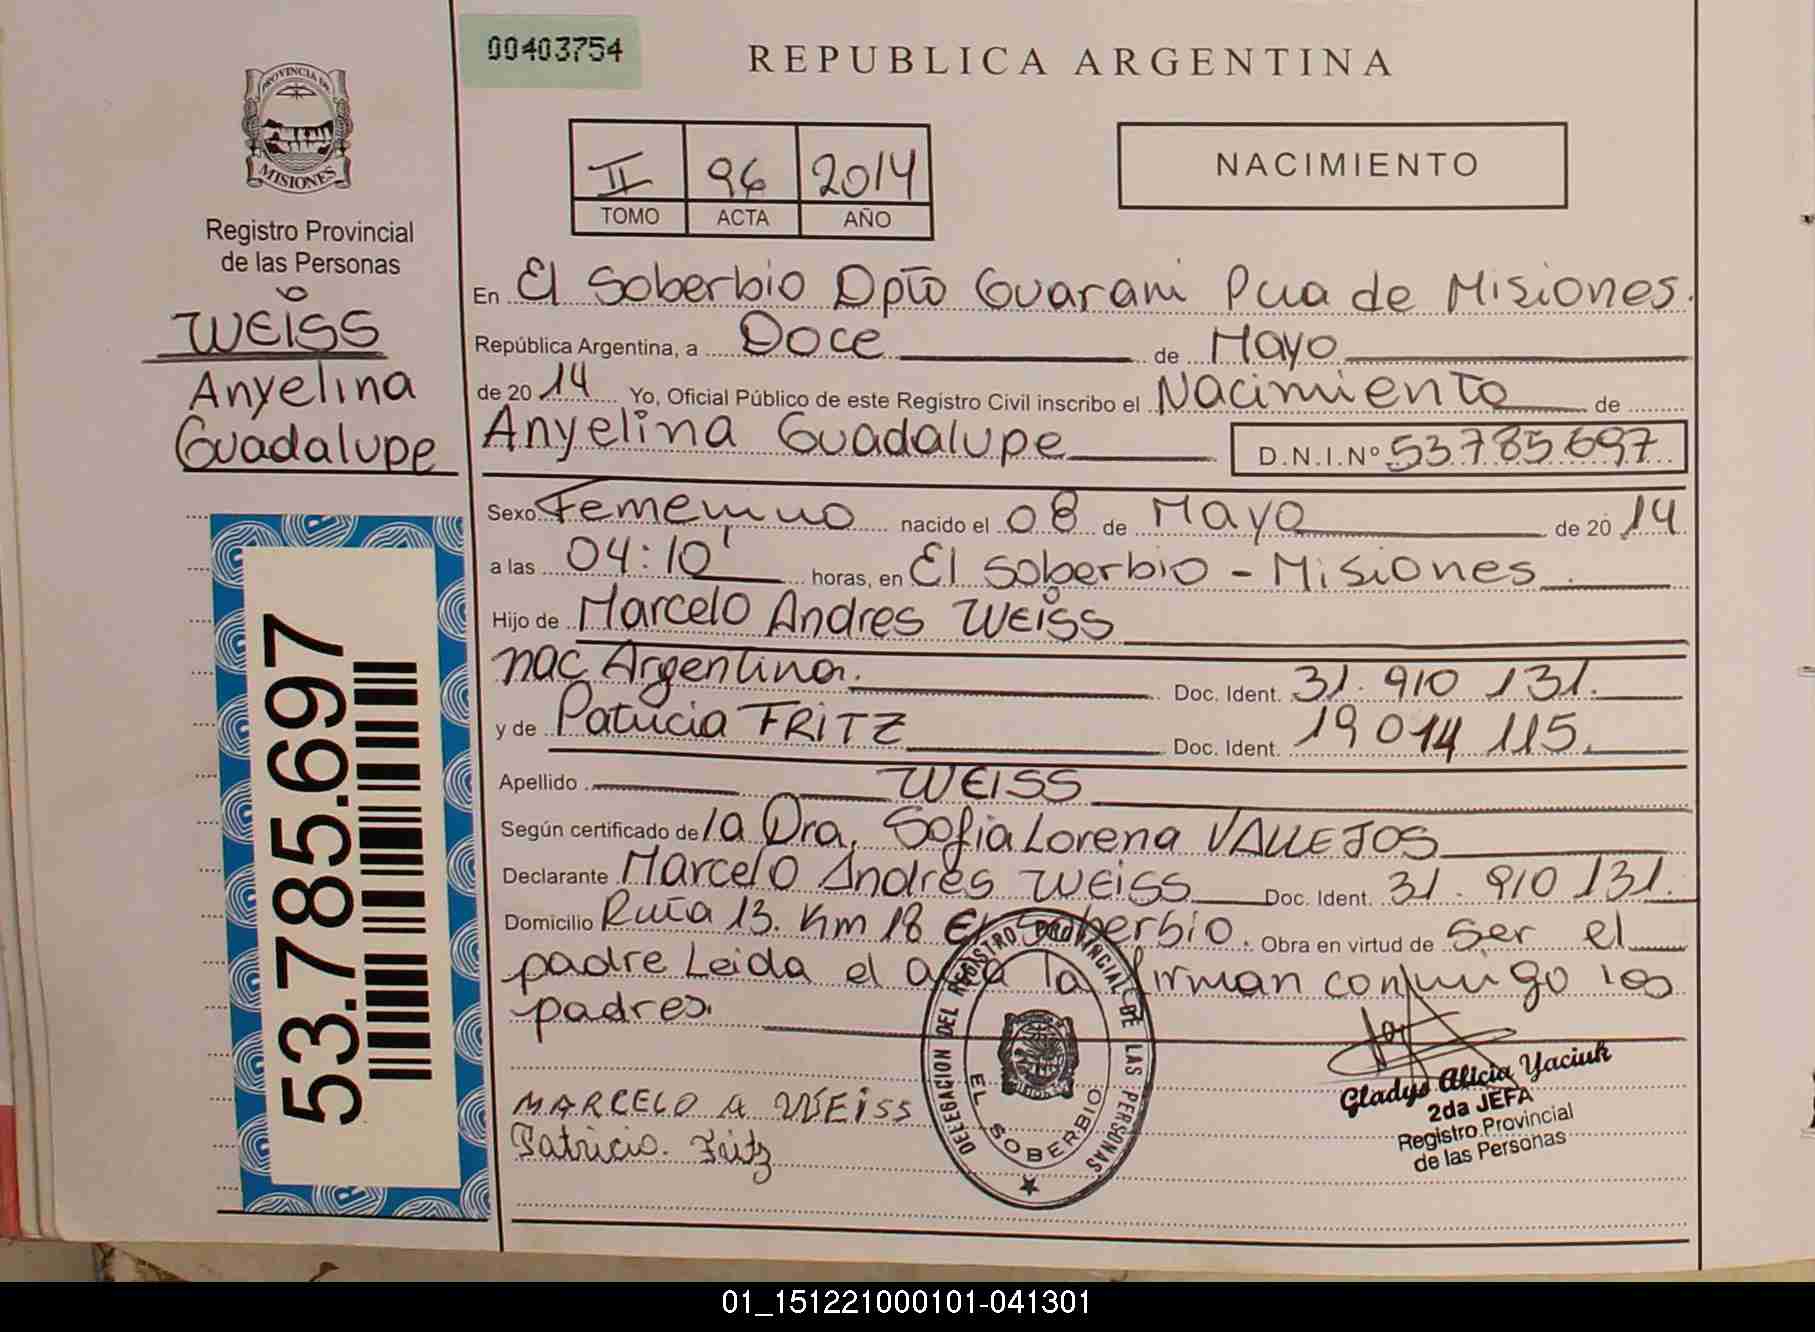 00403754
REPUBLICA ARGENTINA
PROVINCIA DE
MISIONES
Registro Provincial
de las Personas
WEISS
Anyelina
Guadalupe
II 96 2014
TOMO ACTA AÑO
NACIMIENTO
En El Soberbio Dpto Guarani Pcia de Misiones.
República Argentina, a Doce de Mayo
de 20 14 Yo, Oficial Público de este Registro Civil inscribo el Nacimiento de
Anyelina Guadalupe D.N.I.Nº 53.785.697
Sexo Femenino nacido el 08 de Mayo de 20 14
a las 04:10' horas, en El Soberbio - Misiones
Hijo de Marcelo Andres WEISS
nac Argentina. Doc. Ident. 31.910 131.
y de Patricia FRITZ Doc. Ident. 19 014 115.
Apellido WEISS
Según certificado de la Dra, Sofia Lorena VALLEJOS
Declarante Marcelo Andres WEISS Doc. Ident. 31.910 131.
Domicilio Ruta 13. Km 18 El Soberbio. Obra en virtud de Ser el
padre Leida el acta la firman conmigo los
padres.
MARCELO A WEISS
Patricia. Fritz
DELEGACION DEL REGISTRO PROVINCIAL DE LAS PERSONAS
EL SOBERBIO
Gladys Alicia Yaciuk
2da JEFA
Registro Provincial
de las Personas
53.785.697
01_151221000101-041301